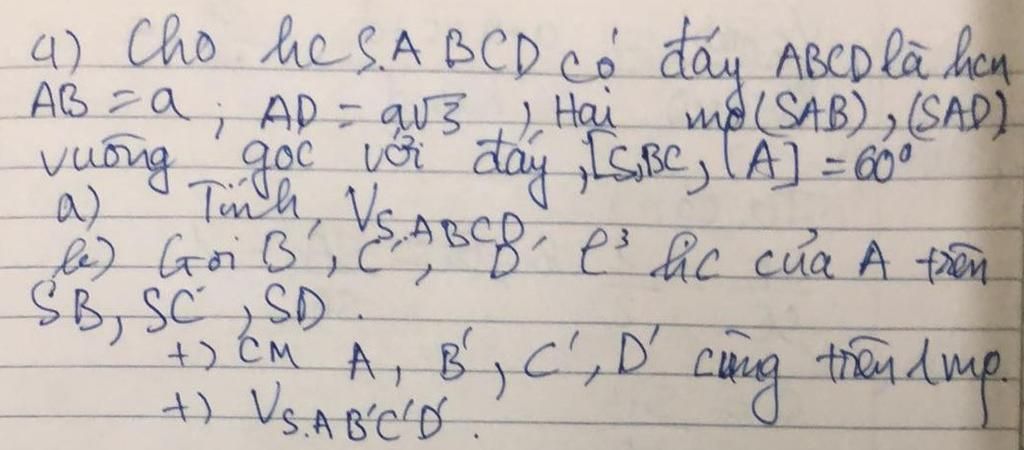 4) Cho hc S.ABCD có đáy ABCD là hcn
AB = a ; AD = a√3 , Hai mp (SAB), (SAD)
vuông góc với đáy, [S,BC, A] = 60°
a) Tính V_S.ABCD
b) Gọi B', C', D' l³ hc của A trên
SB, SC, SD.
+) CM A, B', C', D' cùng trên 1 mp.
+) V_S.AB'C'D'.